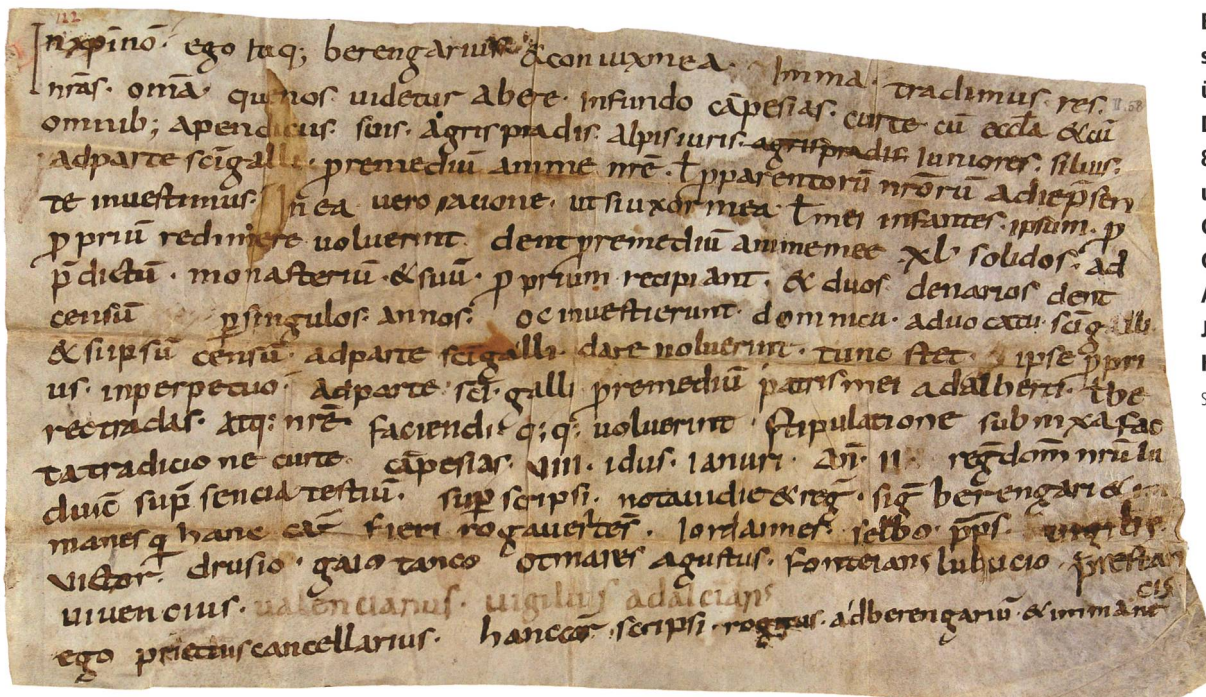 122
In xpi nō. ego itaq; berengarius & coniux mea. Imma. tradimus. res.
nr̄as. omā. que nos uidetur abere. infundo cāpesias. curte cū eccl̄a & cū
II. 58
omnib; apendicius. suis. agris pradis. alpis iuris. agris pradis iuniores. siluis.
adparte sc̄i galli. premediū anime nr̄e. ł p parentorū nr̄orū adie p̄sen
te inuestimus. In ea uero racione. ut si uxor mea ł mei infantes. ipsum. p
priū redimere uoluerint. dent premediū anime mee. XL solidos. ad
p̄dictū. monasteriū. & suū. p prium recipiant. & duos denarios dent
censū p singulos. annos. oc inuestierunt. dominicu. aduocatu. sc̄i galli
& si ipsū censū. adparte sc̄i galli. dare noluerint. tunc stet. ipse p pri
us. inperpetuo. adparte. sc̄i. galli premediū patris mei adalberti. ł be
rectradas. atq: nr̄e faciendi q; q; uoluerint. stipulatione subnixa fac
ta tradicione curte. cāpesias. VIIII. idus. ianuri. an̄. II reḡ domn̄ nrū lu
duuic̄ sup̄ sencia testiū. super scripsi. notauidie & reḡ. siḡ berengari & im
manes q hanc cār fieri rogauer tes̄. Iordannes. selbo. pp̄s.
uictor. drusio. gaio tanco otmares agustus. fonteians lubucio. prestan
cis
uiuencius. ualencianus. uigilius adalcians
ego prectius cancellarius. hanc car̄. scripsi. rogitus. ad berengariū. & immane